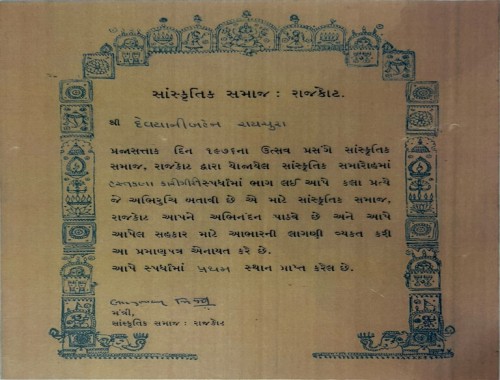 સાંસ્કૃતિક સમાજ : રાજકોટ.
શ્રી દેવયાનીબહેન રાયચુરા
પ્રજાસત્તાક દિન ૧૯૭૬ના ઉત્સવ પ્રસંગે સાંસ્કૃતિક
સમાજ, રાજકોટ દ્વારા યોજાયેલ સાંસ્કૃતિક સમારોહમાં
હસ્તકળા કારીગીરી સ્પર્ધામાં ભાગ લઈ આપે કલા પ્રત્યે
જે અભિરુચિ બતાવી છે એ માટે સાંસ્કૃતિક સમાજ,
રાજકોટ આપને અભિનંદન પાઠવે છે અને આપે
આપેલ સહકાર માટે આભારની લાગણી વ્યક્ત કરી
આ પ્રમાણપત્ર એનાયત કરે છે.
આપે સ્પર્ધામાં પ્રથમ સ્થાન પ્રાપ્ત કરેલ છે.
મંત્રી,
સાંસ્કૃતિક સમાજ : રાજકોટ